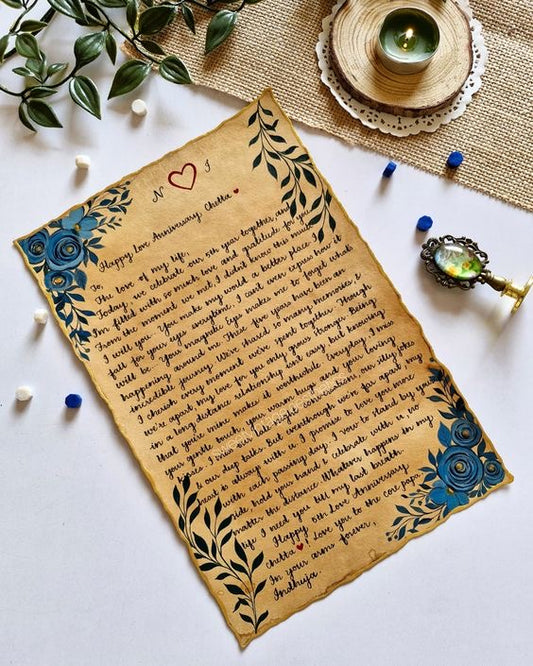 N I
Happy love Anniversary Chetta
The love of my life,
Today, we celebrate our 5th year together and
I'm filled with so much love and gratitude for you
From the moment we met I didn't know this much
I will you. You make my world a better place. I
fall for your eyes everytime. I can't even express how it
will be. Your magnetic Eyes makes me to forget what
happening around me. These five years have been an
incredible journey. We've shared so many memories &
I cherish every moment we've spent together. Though
we're apart my love for you only grows strong. Being
in a long distance relationship isn't easy but knowing
that you're mine makes it worthwhile. Everyday I miss
your gentle touch, your warm hug and your loving
I miss our late night conversations, our silly jokes
& our day talks. But eventhough we're far apart my
heart is always with you. I promise to love you more
with each passing day. I vow to stand by your
side, hold your hand & celebrate with you no
matter the distance. Whatever happens in my
life I need you till my last breath.
Happy 5th Love Anniversary
Chetta! Love you to the core papa
In your arms forever,
Indhuja.